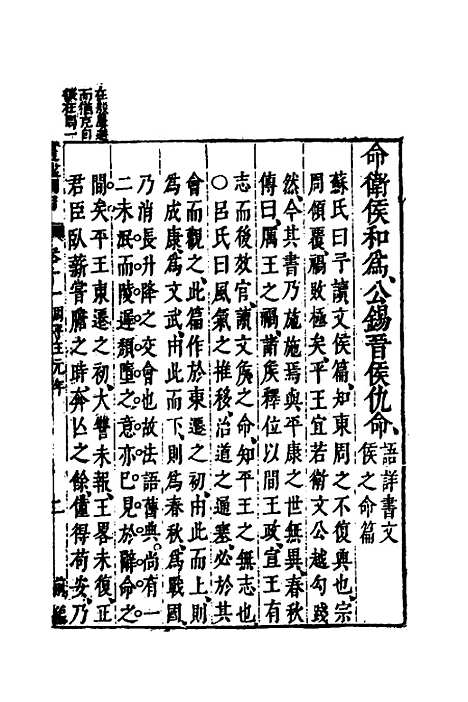 命衛侯和爲公錫晉侯仇命語詳書文侯之命篇
蘇氏曰予讀文侯篇知東周之不復興也宗
周傾覆禍敗極矣平王宜若衛文公越勾踐
然今其書乃施施焉與平康之世無異春秋
傳曰厲王之禍諸侯釋位以間王政宣王有
志而後效官讀文侯之命知平王之無志也
○呂氏曰風氣之推移治道之通塞必於其
會而觀之此篇作於東遷之初由此而上則
爲成康爲文武由此而下則爲春秋爲戰國
乃消長升降之交會也故法語舊典尚有一
二未泯而陵遲頹墮之意亦已見於辭命之
間矣平王東遷之初大讐未報王畧未復正
君臣臥薪嘗膽之時奔亾之餘僅得苟安乃